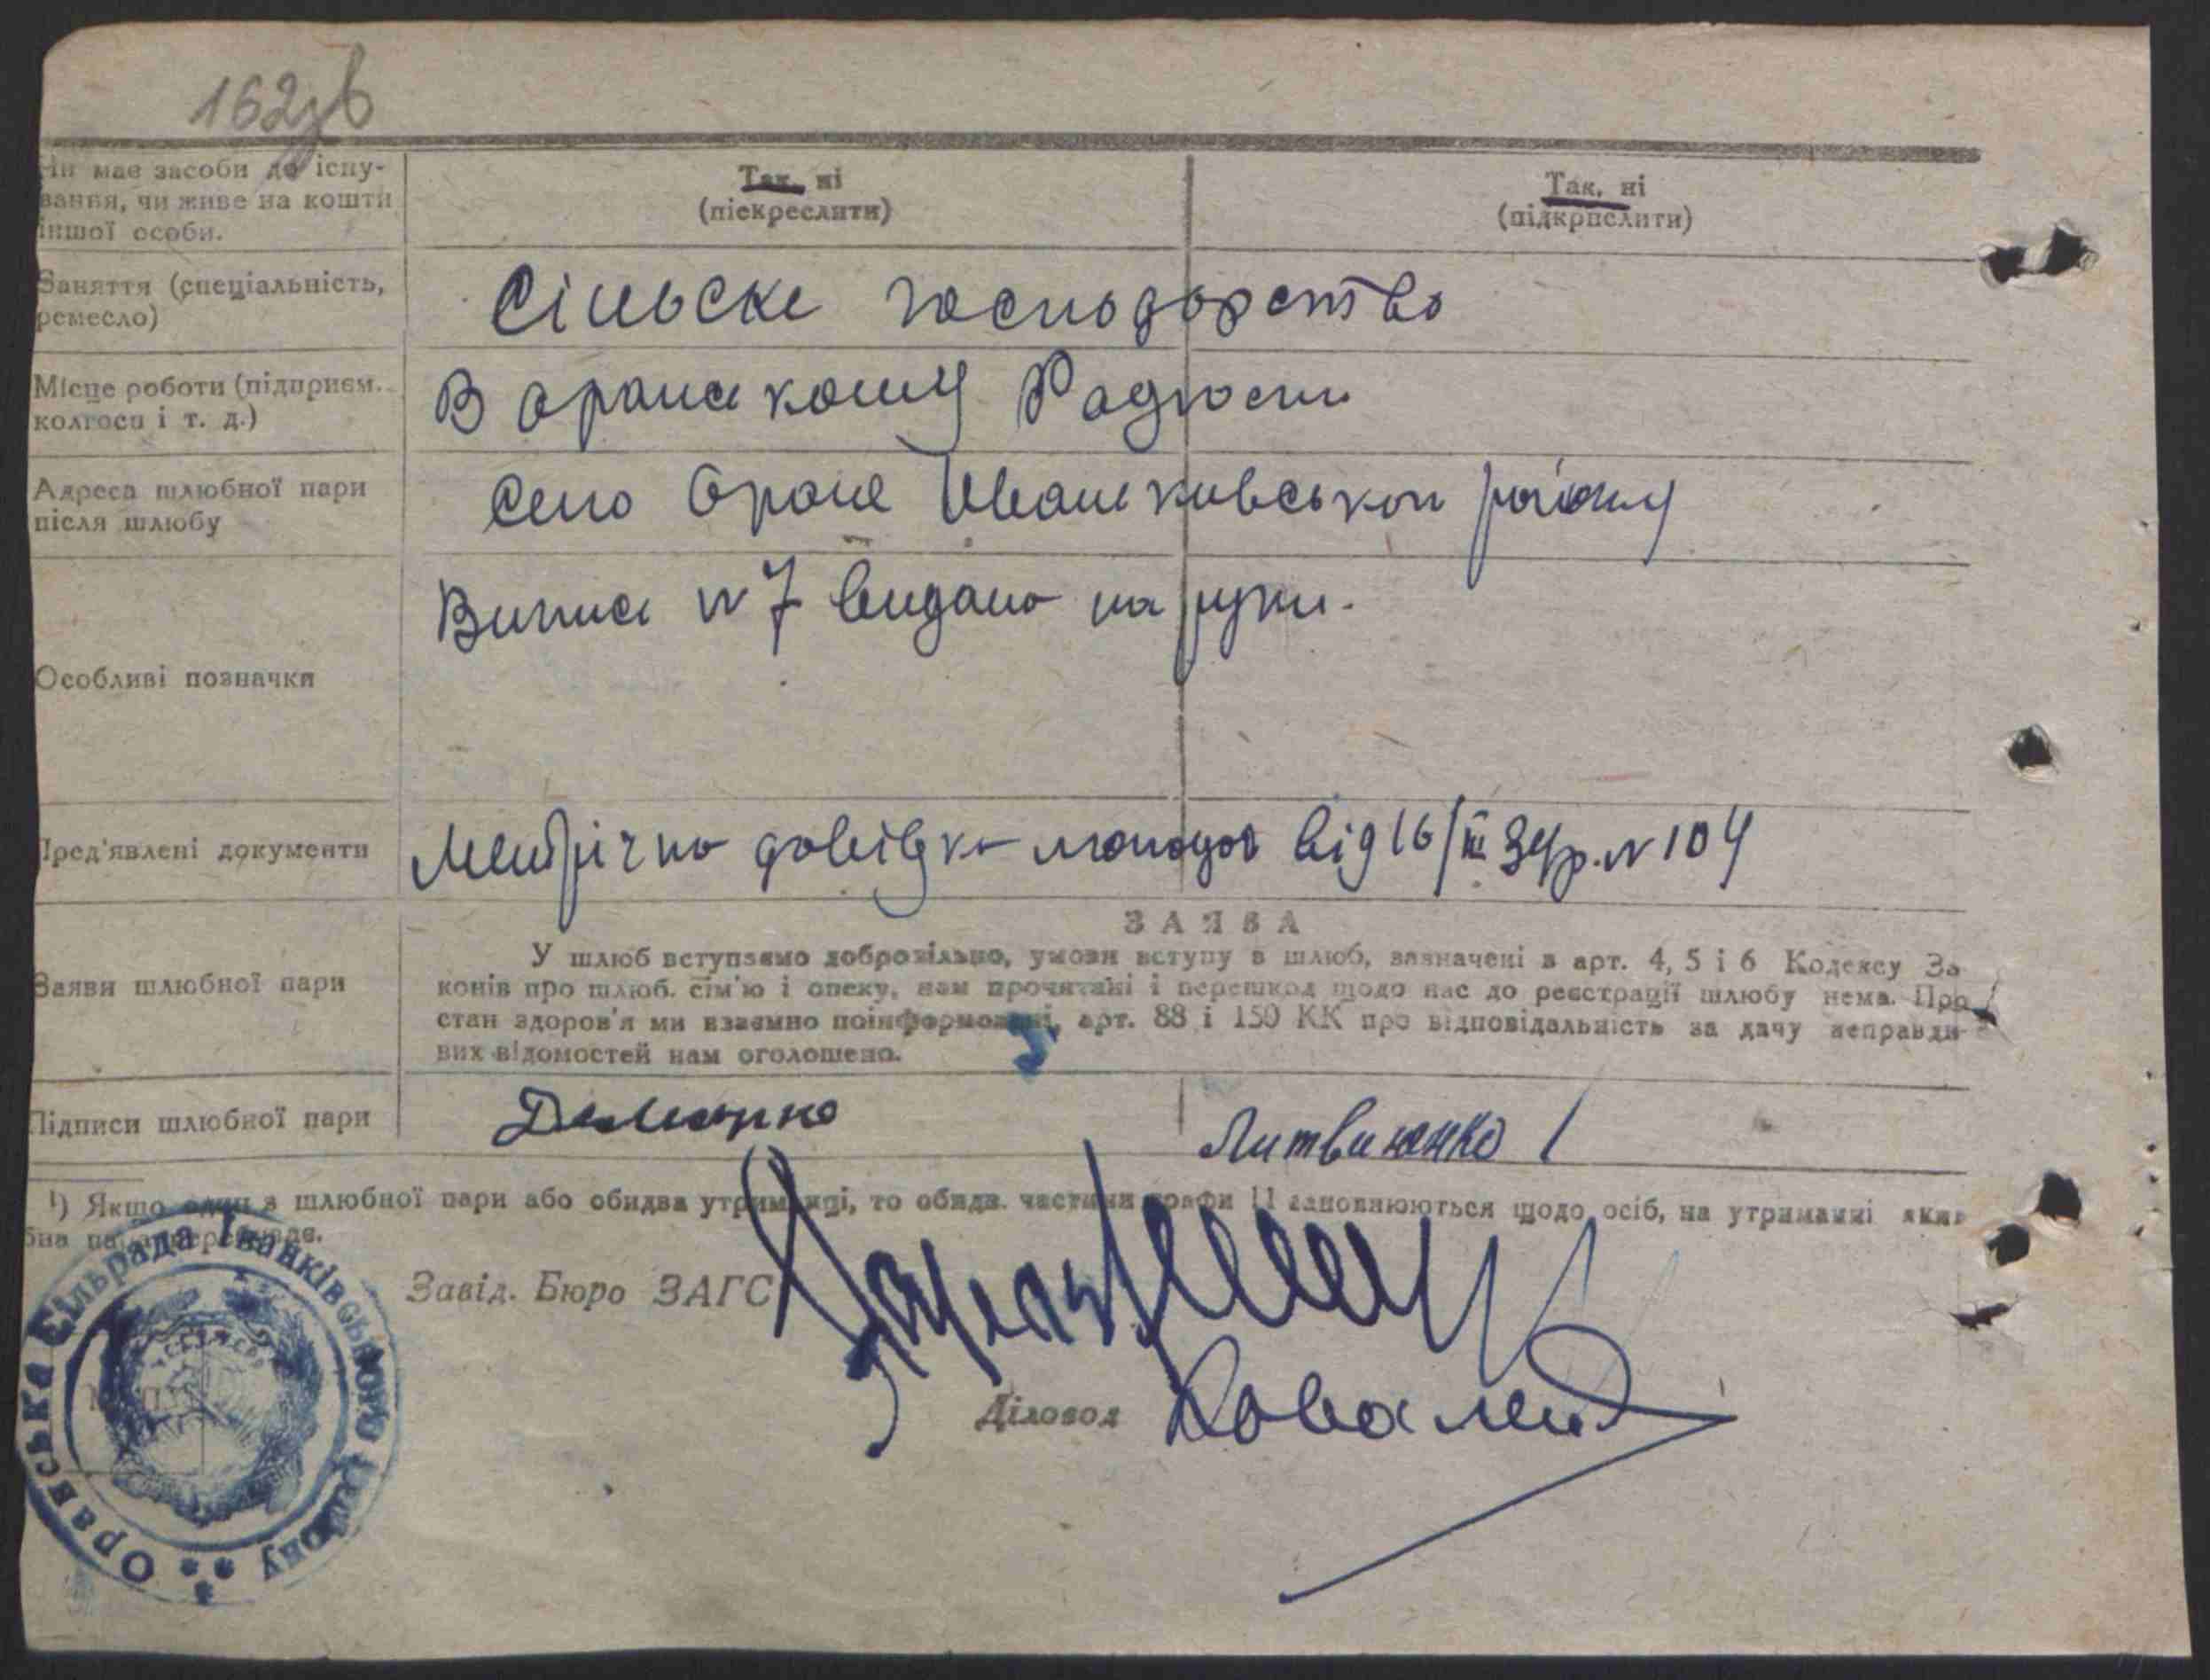 162зв
Чи має засоби до існу-
вання, чи живе на кошти
іншої особи.
Так, ні
(піекреслити)
Так, ні
(підкрпслити)
Заняття (спеціальність,
ремесло)
Сільське господарство
Місце роботи (підприєм.
колгосп і т. д.)
В Аранському Радгоспі
Адреса шлюбної пари
після шлюбу
Село Оране Іванківського району
Особливі позначки
Випис N 7 видано на руки.
Пред'явлені документи
Метрічна довідка молодої від 16/III 34 р. N 104
Заяви шлюбної пари
ЗАЯВА
У шлюб вступаємо добровільно, умови вступу в шлюб, зазначені в арт. 4, 5 і 6 Кодексу За
конів про шлюб. сім'ю і опеку, нам прочитані і перешкод щодо нас до реєстрації шлюбу нема. Про
стан здоров'я ми взаємно поінформовані, арт. 88 і 150 КК про відповідальність за дачу неправди-
вих відомостей нам оголошено.
Підписи шлюбної пари
Литвиненко
¹) Якщо один з шлюбної пари або обидва утриманці, то обидв. частини графи 11 заповнюються щодо осіб, на утриманні яких
Завід. Бюро ЗАГС
Діловод
Оранська Сільрада Іванківського району